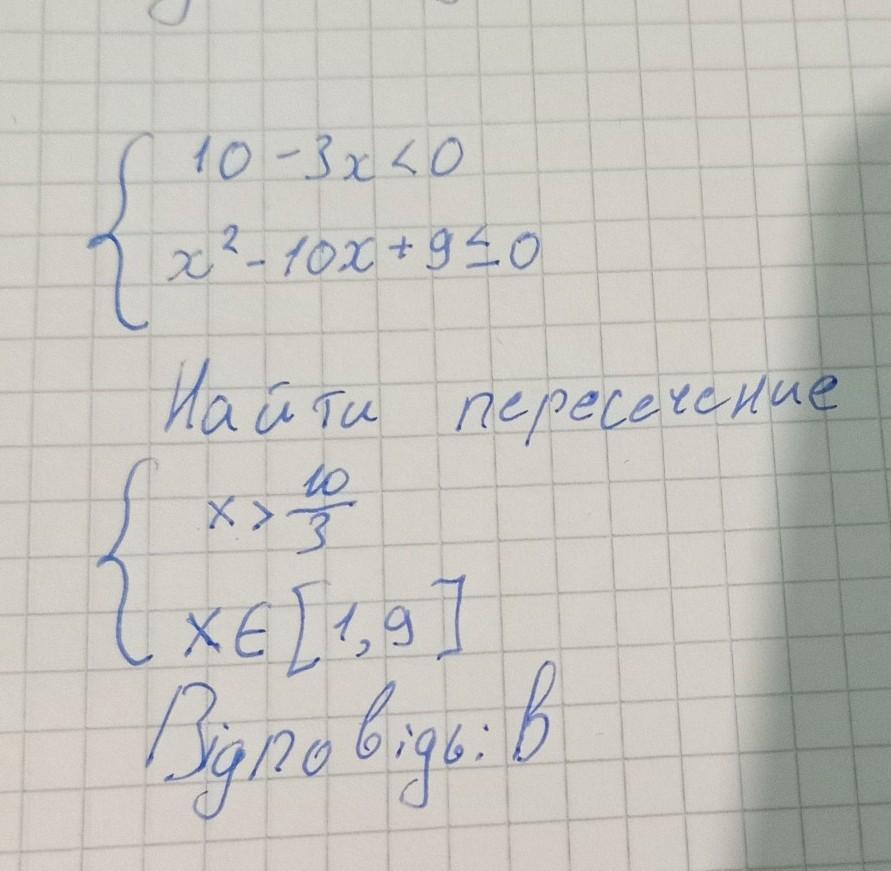 10 - 3x < 0
x² - 10x + 9 ≤ 0
Найти пересечение
x > 10/3
x ∈ [1, 9]
Відповідь: В